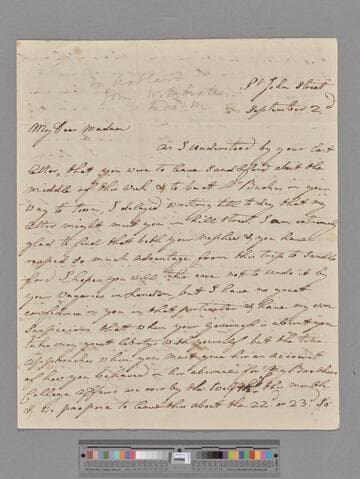 In Scotland
from
with brother
St John Street
September 2d
My Dear Madam
as I understood by your last
letter, that you were to leave Sandleford about the
middle of this week & to be at Mr
way to Town, I delayed writing till to day that my
letter might meet you in Hill Street. I am extremely
glad to find that both your Nephew & you have
reaped so much advantage from this trip to Sandle
ford I hope you will take care not to undo it by
your Vagaries in London but I have no great
confidence in you in that particular & have my own
suspicions that when your Governess is absent you
take very great liberty with yourself but the time
approaches when you must give her an account
of how you behaved in her absence for My Brothers
College affairs are over by the this month
& we propose to leave this about the 22d or 23d So